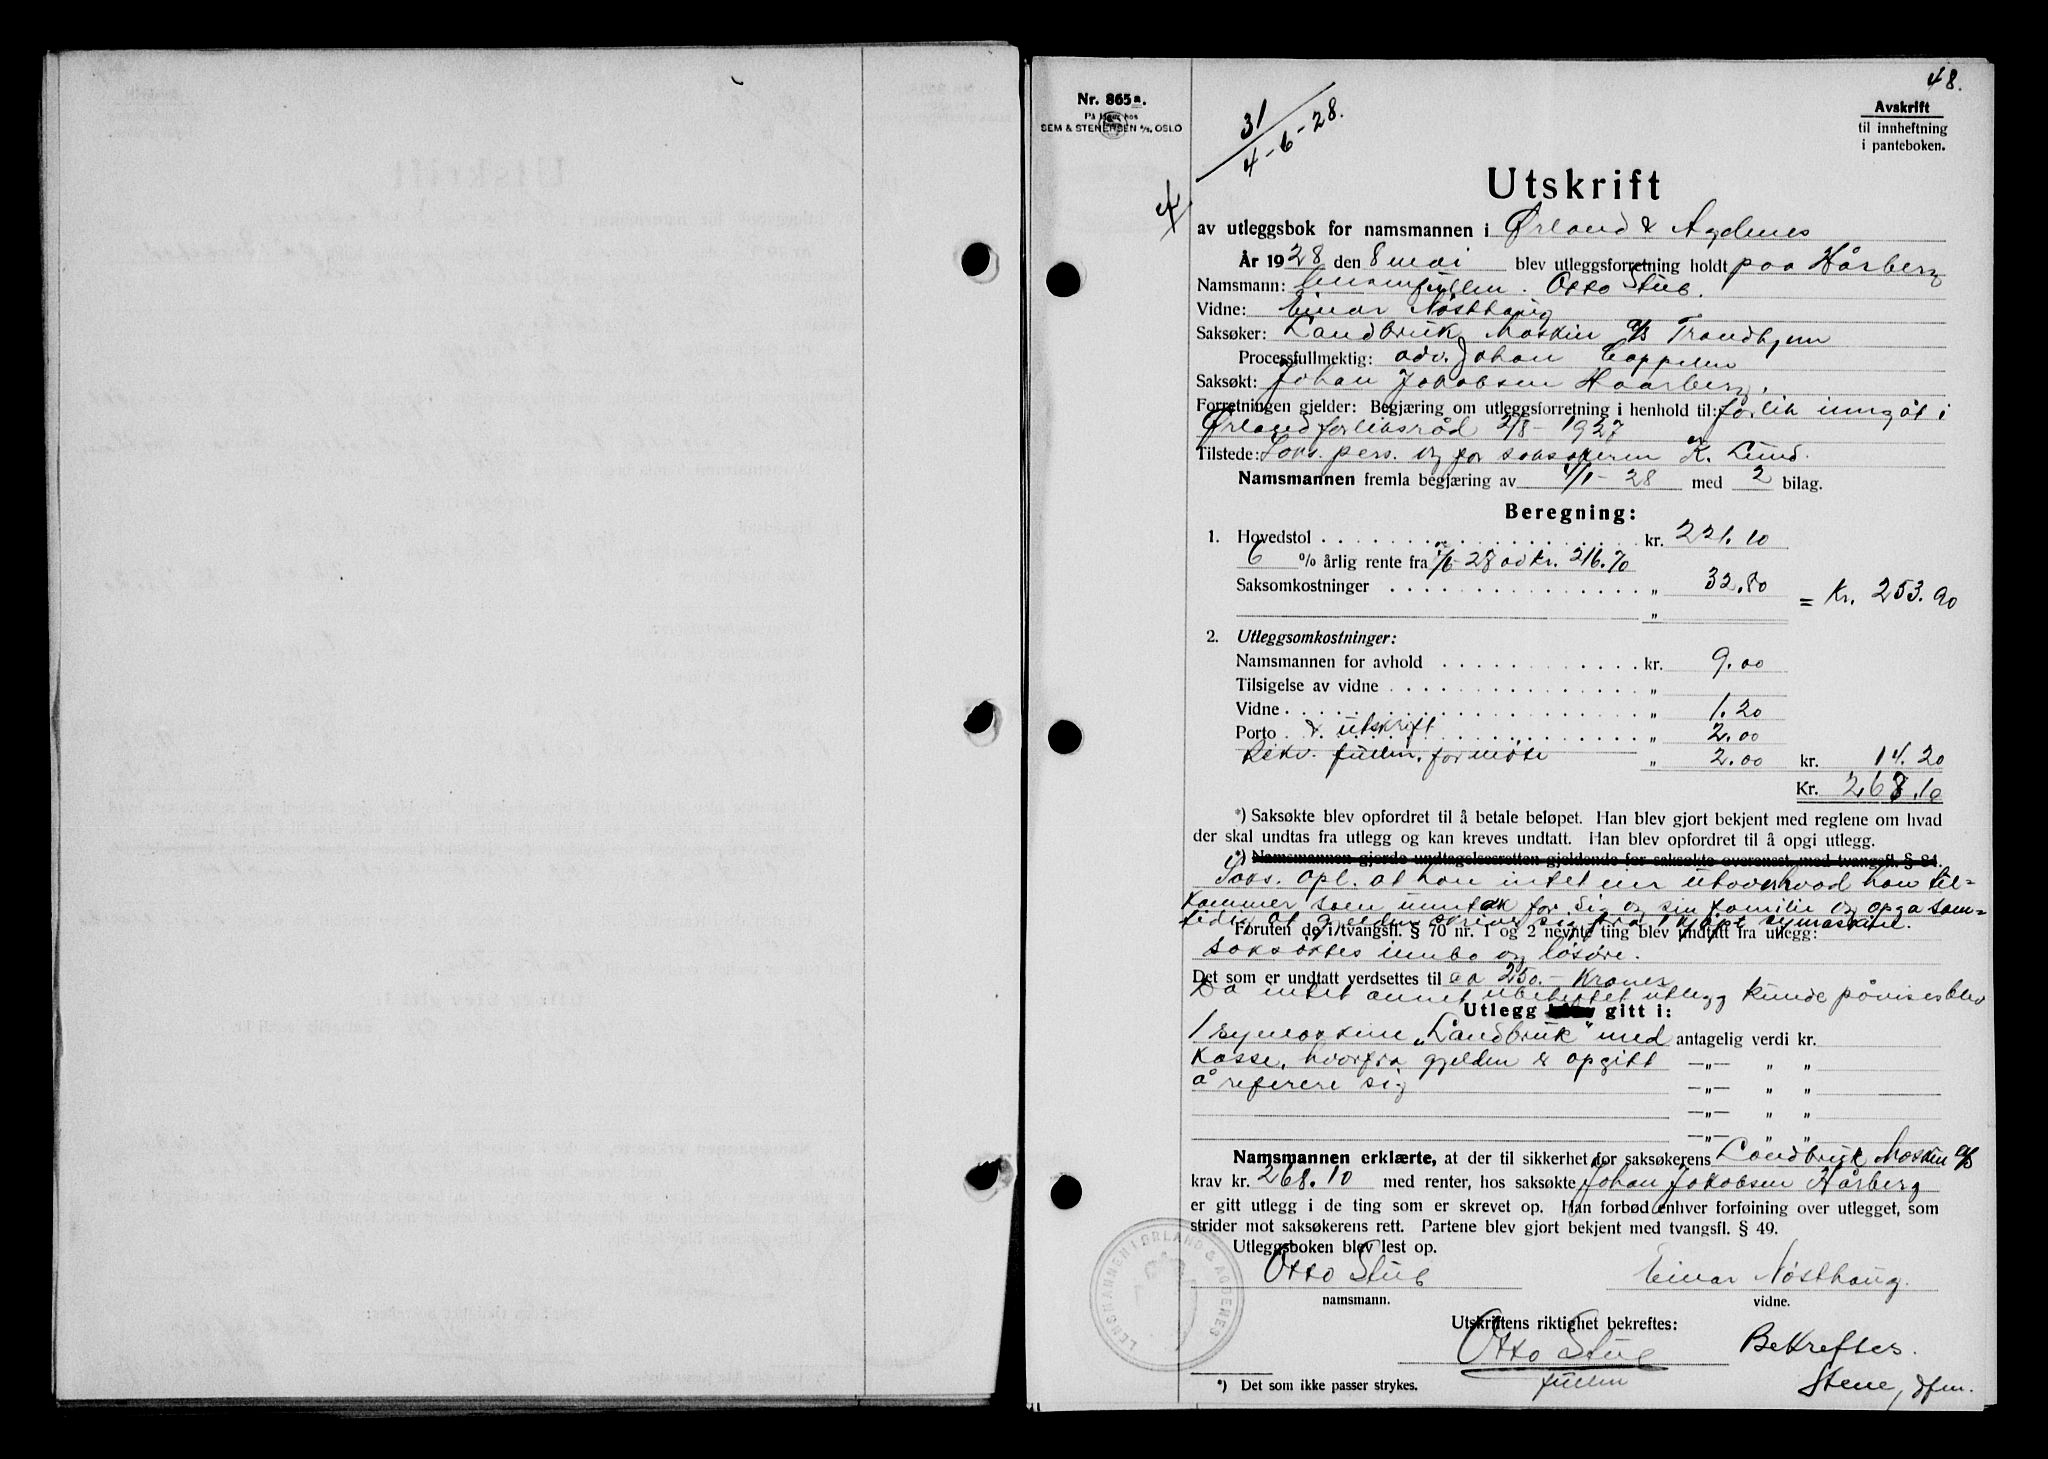 48.
Nr. 865a.
På lager hos
SEM & STENERSEN A/S, OSLO
31
4-6-28.
Avskrift
til innheftning
i panteboken.
Utskrift
av utleggsbok for namsmannen i Ørland & Agdenes
År 1928 den 8 mai blev utleggsforretning holdt paa Hårberg
Namsmann: Otto Stub.
Vidne: Einar Nøsthaug
Saksøker: Landbruk Maskin A/S Trondhjem
Processfullmektig: adv. Johan Cappelen
Saksøkt: Johan Jakobsen Haarberg.
Forretningen gjelder: Begjæring om utleggsforretning i henhold til: forlik inngåt i
Ørland forliksråd 2/8-1927
Tilstede: Saks. pers. og for saksøkeren K. Lund.
Namsmannen fremla begjæring av 1/1-28 med 2 bilag.
Beregning:
1. Hovedstol kr. 221.10
6 % årlig rente fra 1/6-28 av kr. 216.70
Saksomkostninger „ 32.80 = Kr. 253.90
„
2. Utleggsomkostninger:
Namsmannen for avhold kr. 9.00
Tilsigelse av vidne „
Vidne „ 1.20
Porto & utskrift „ 2.00
Rekv. fullm. for møte „ 2.00 kr. 14.20
Kr. 268.10
*) Saksøkte blev opfordret til å betale beløpet. Han blev gjort bekjent med reglene om hvad
der skal undtas fra utlegg og kan kreves undtatt. Han blev opfordret til å opgi utlegg.
*) Namsmannen gjorde undtagelsesretten gjeldende for saksøkte overensst. med tvangsfl. § 84.
Saks. opl. at han intet eier utover hvad han til-
kommer som unntak for sig og sin familie og opga sam-
tidig at gjelden skriver sig fra 1 kjøpt symaskine.
Foruten de i tvangsfl. § 70 nr. 1 og 2 nevnte ting blev undtatt fra utlegg:
saksøktes innbo og løsøre.
Det som er undtatt verdsettes til ca 250.- Kroner
Da intet annet ubeheftet utlegg kunde påvises blev
Utlegg gitt i:
1 symaskine „Landbruk" med antagelig verdi kr.
kasse, hvorfra gjelden er opgitt —„— „ „
å referere sig —„— „ „
—„— „ „
—„— „ „
Namsmannen erklærte, at der til sikkerhet for saksøkerens Landbruk Maskin A/S
krav kr. 268.10 med renter, hos saksøkte Johan Jakobsen Hårberg
er gitt utlegg i de ting som er skrevet op. Han forbød enhver forføining over utlegget, som
strider mot saksøkerens rett. Partene blev gjort bekjent med tvangsfl. § 49.
Utleggsboken blev lest op.
Otto Stub Einar Nøsthaug.
namsmann. vidne.
LENSMANNEN I ØRLAND & AGDENES
Utskriftens riktighet bekreftes:
Otto Stub
fullm
Bekreftes.
Stene, dfm.
*) Det som ikke passer strykes.